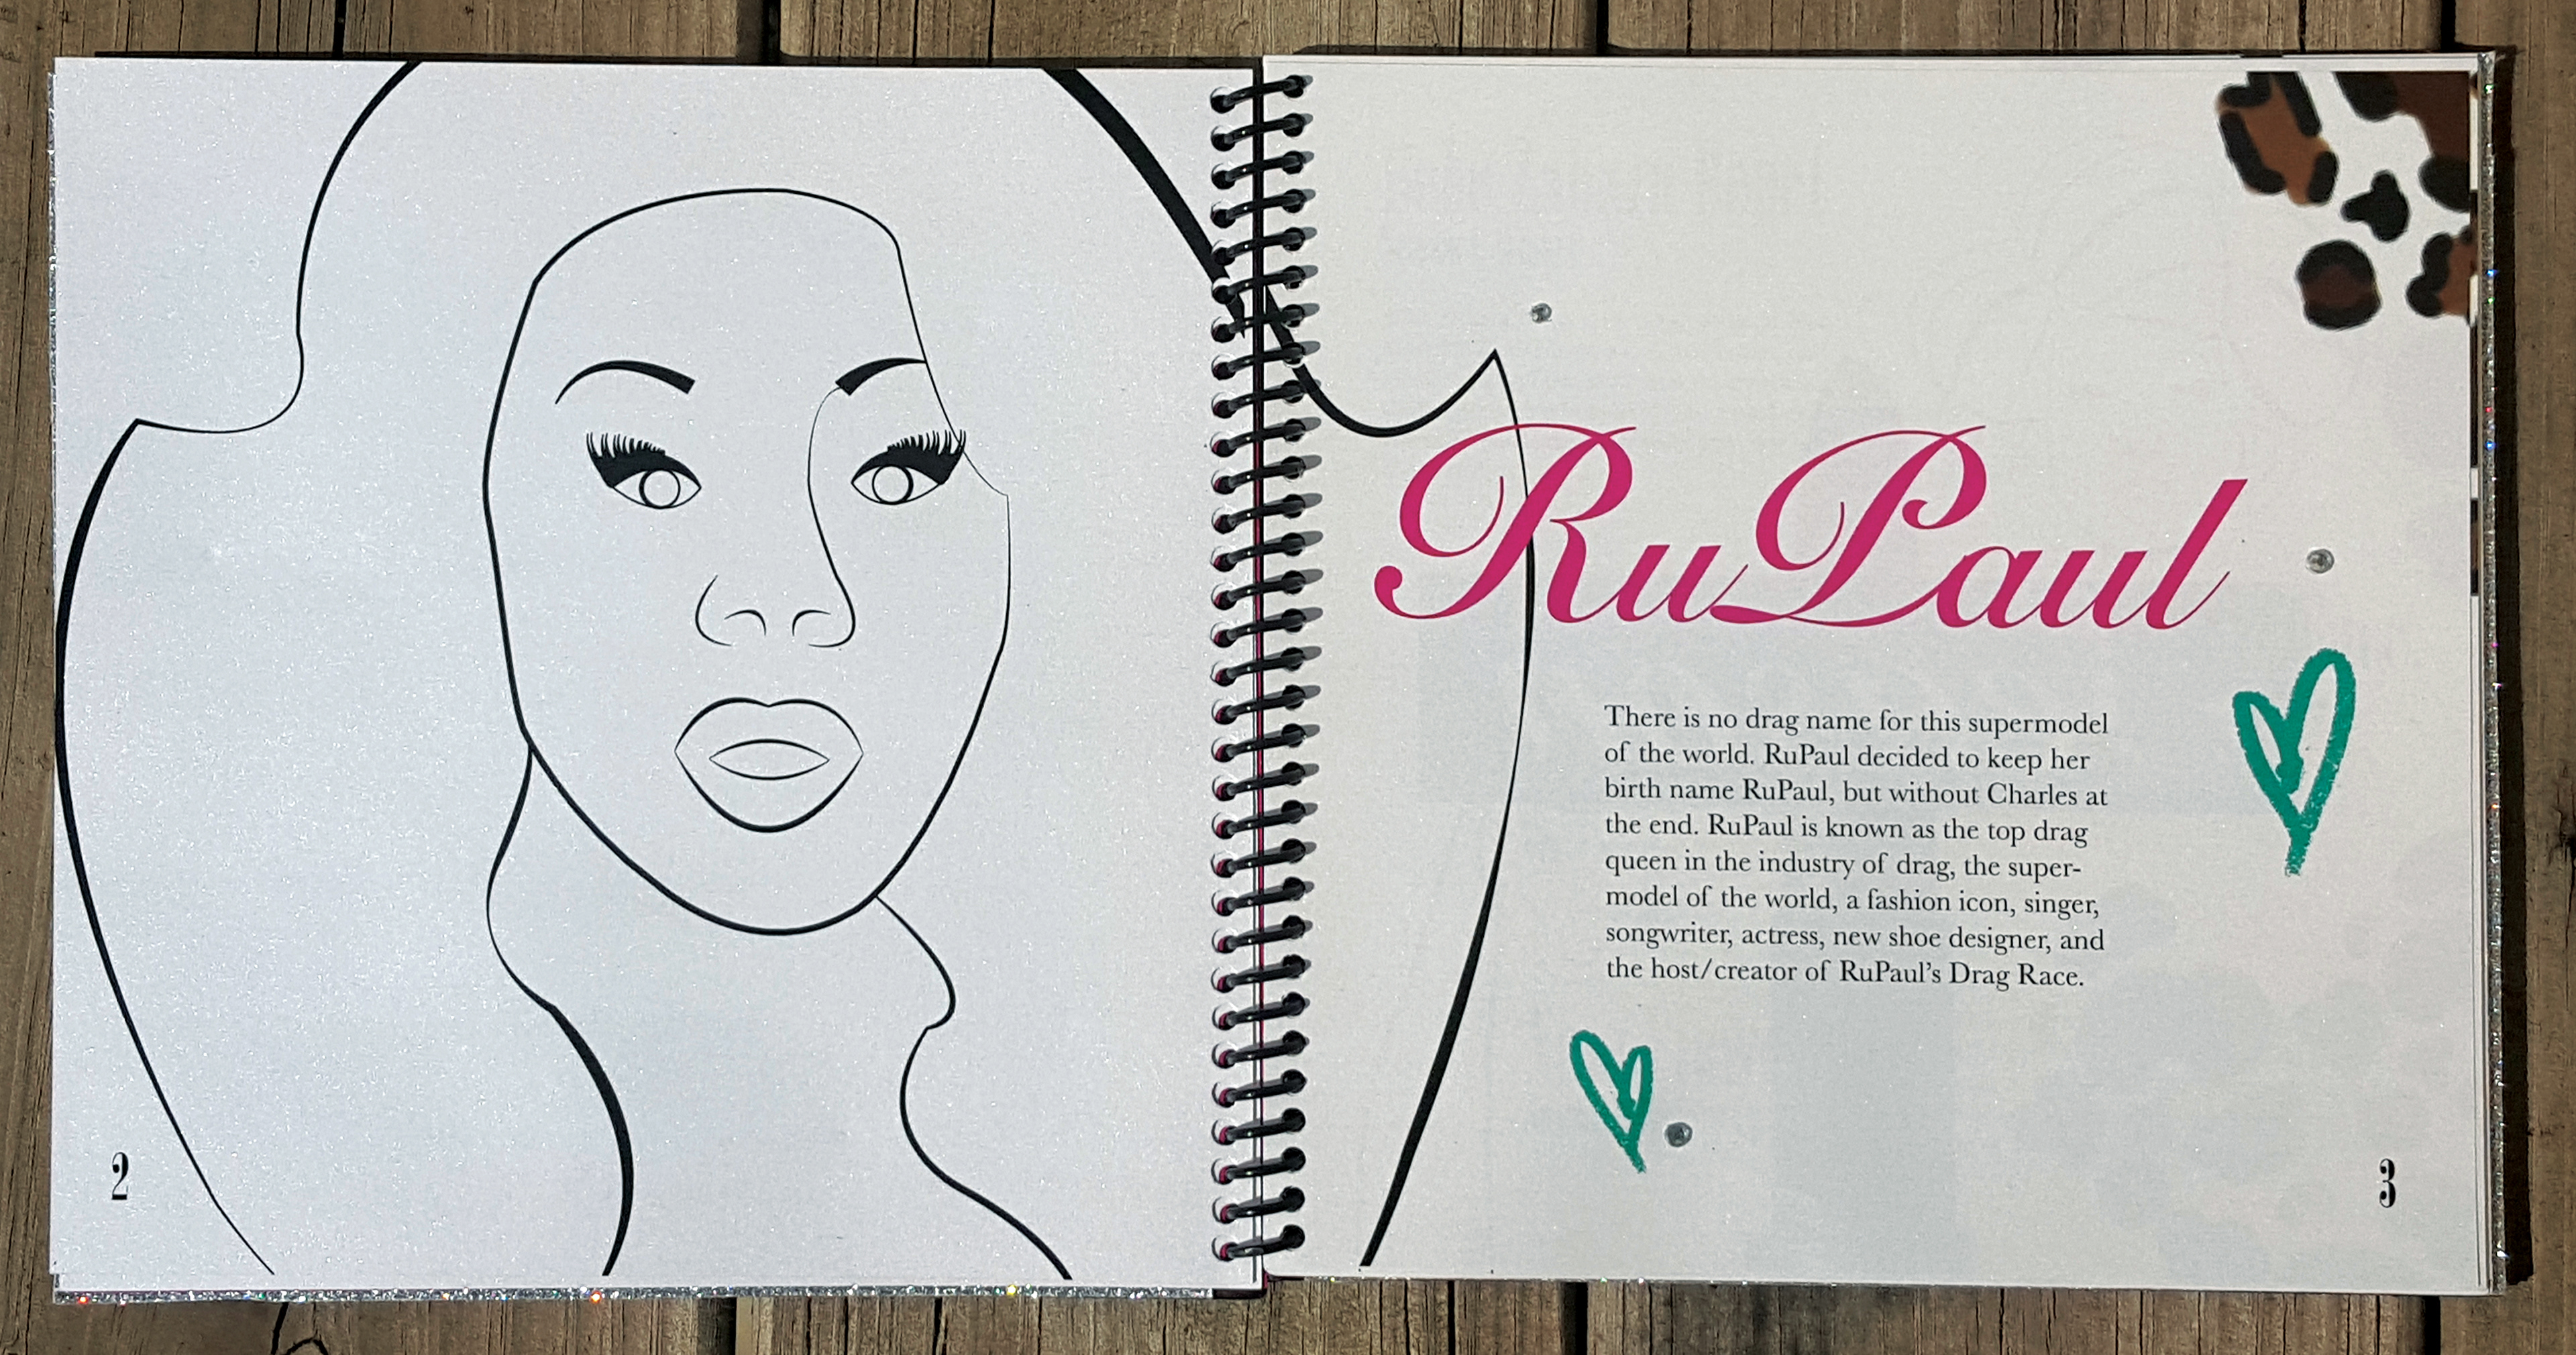 RuPaul
There is no drag name for this supermodel
of the world. RuPaul decided to keep her
birth name RuPaul, but without Charles at
the end. RuPaul is known as the top drag
queen in the industry of drag, the super-
model of the world, a fashion icon, singer,
songwriter, actress, new shoe designer, and
the host/creator of RuPaul's Drag Race.
2
3